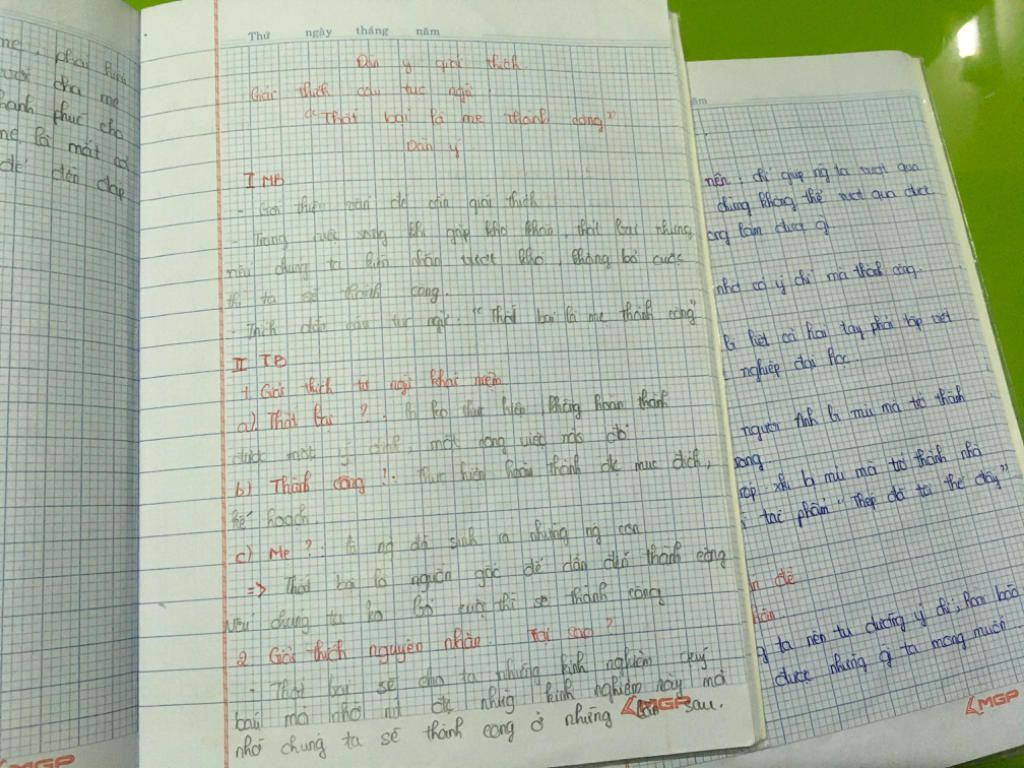 mẹ, phải
cha mẹ
hạnh phúc cho
mẹ là mất
để đền đáp
MGP
Thứ ngày tháng năm
Dàn ý giải thích
Giải thích câu tục ngữ
"Thất bại là mẹ thành công"
Dàn ý
I MB
- Giới thiệu vấn đề cần giải thích
- Trong cuộc sống khi gặp khó khăn, thất bại nhưng
nếu chúng ta kiên nhẫn vượt khó, không bỏ cuộc
thì ta sẽ thành công.
- Trích dẫn câu tục ngữ: "Thất bại là mẹ thành công"
II TB
1. Giải thích từ ngữ khái niệm
a). Thất bại ?. là ko thực hiện, không hoàn thành
được một ý định, một công việc nào đó
b) Thành công ?: thực hiện hoàn thành đc mục đích,
kế hoạch.
c) Mẹ ?: là ng đã sinh ra những ng con
=> Thất bại là nguồn gốc để dẫn đến thành công
Nếu chúng ta ko bỏ cuộc thì sẽ thành công
2. Giải thích nguyên nhân. Tại sao ?
- Thất bại sẽ cho ta những kinh nghiệm quý
báu mà nhờ nó để những kinh nghiệm này mà
nhờ chúng ta sẽ thành công ở những lần sau.
MGP
năm
nên, chí giúp ng ta vượt qua
chúng không thể vượt qua được
ong làm được gì
nhờ có ý chí mà thành công.
bị liệt cả hai tay phải tập viết
nghiệp đại học.
người Anh bị mù mà trở thành
ốp xki bị mù mà trở thành nhà
tác phẩm "Thép đã tôi thế đấy"
đề
ta nên tu dưỡng ý chí, hoài bão
được những gì ta mong muốn
MGP